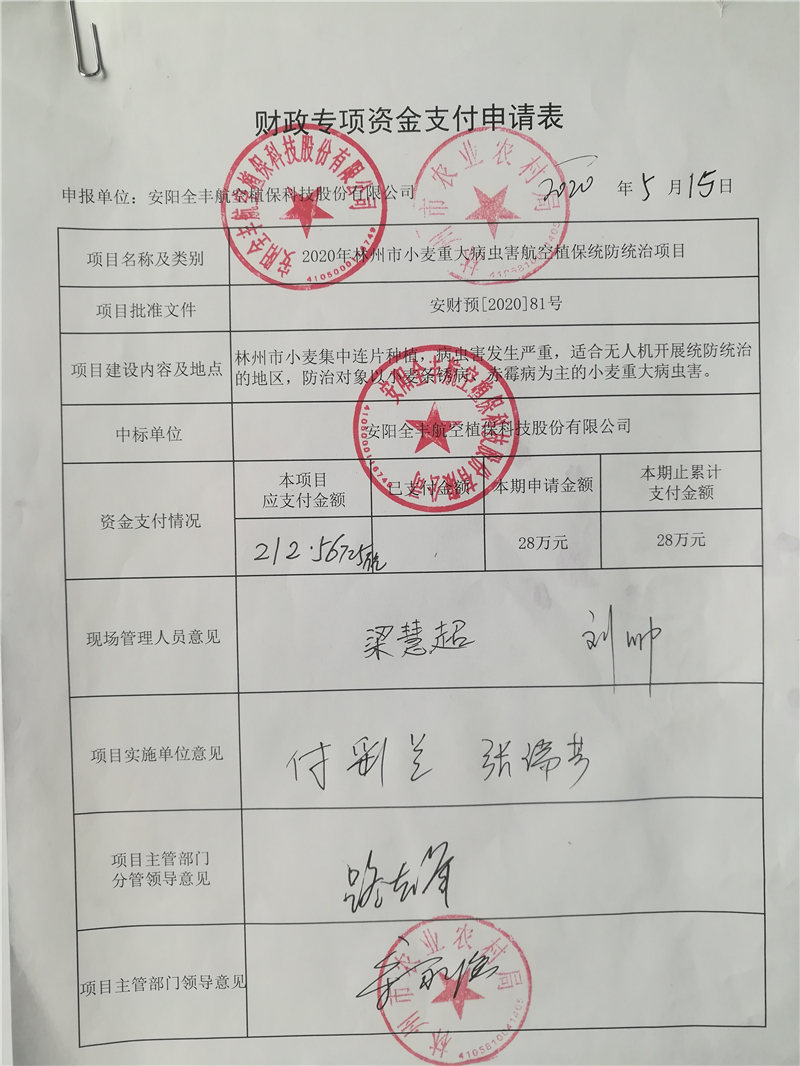 财政专项资金支付申请表
申报单位：安阳全丰航空植保科技股份有限公司 2020 年 5 月 15 日
项目名称及类别 2020年林州市小麦重大病虫害航空植保统防统治项目
项目批准文件 安财预[2020]81号
项目建设内容及地点 林州市小麦集中连片种植，病虫害发生严重，适合无人机开展统防统治
的地区，防治对象以小麦条锈病，赤霉病为主的小麦重大病虫害。
中标单位 安阳全丰航空植保科技股份有限公司
资金支付情况
本项目
应支付金额
已支付金额
本期申请金额
本期止累计
支付金额
212.56725万元 28万元 28万元
现场管理人员意见 梁慧超 刘帅
项目实施单位意见 付 兰 张瑞芳
项目主管部门
分管领导意见
路志
项目主管部门领导意见
安阳全丰航空植保科技股份有限公司
4105000116749
林州市农业农村局
4105810041405
安阳全丰航空植保科技股份有限公司
4105000116749
林州市农业农村局
4105810041405